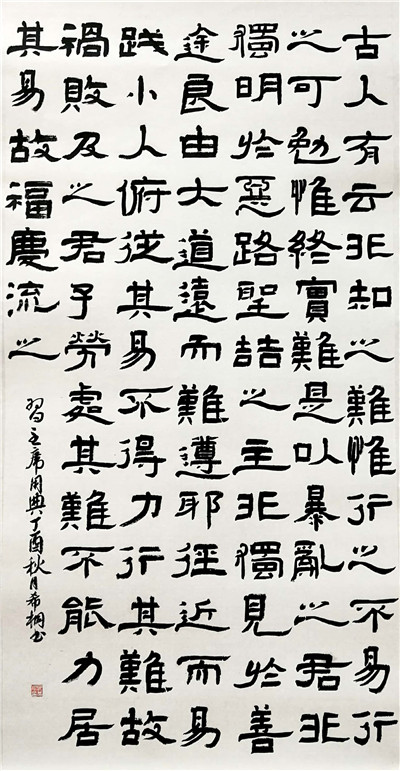 古人有云非知之難惟行之不易行
之可勉惟終實難是以暴亂之君非
獨明於惡路聖喆之主非獨見於善
途良由大道遠而難遵耶徑近而易
踐小人俯從其易不得力行其難故
禍敗及之君子勞處其難不能力居
其易故福慶流之
習主席用典丁酉秋月希桐書